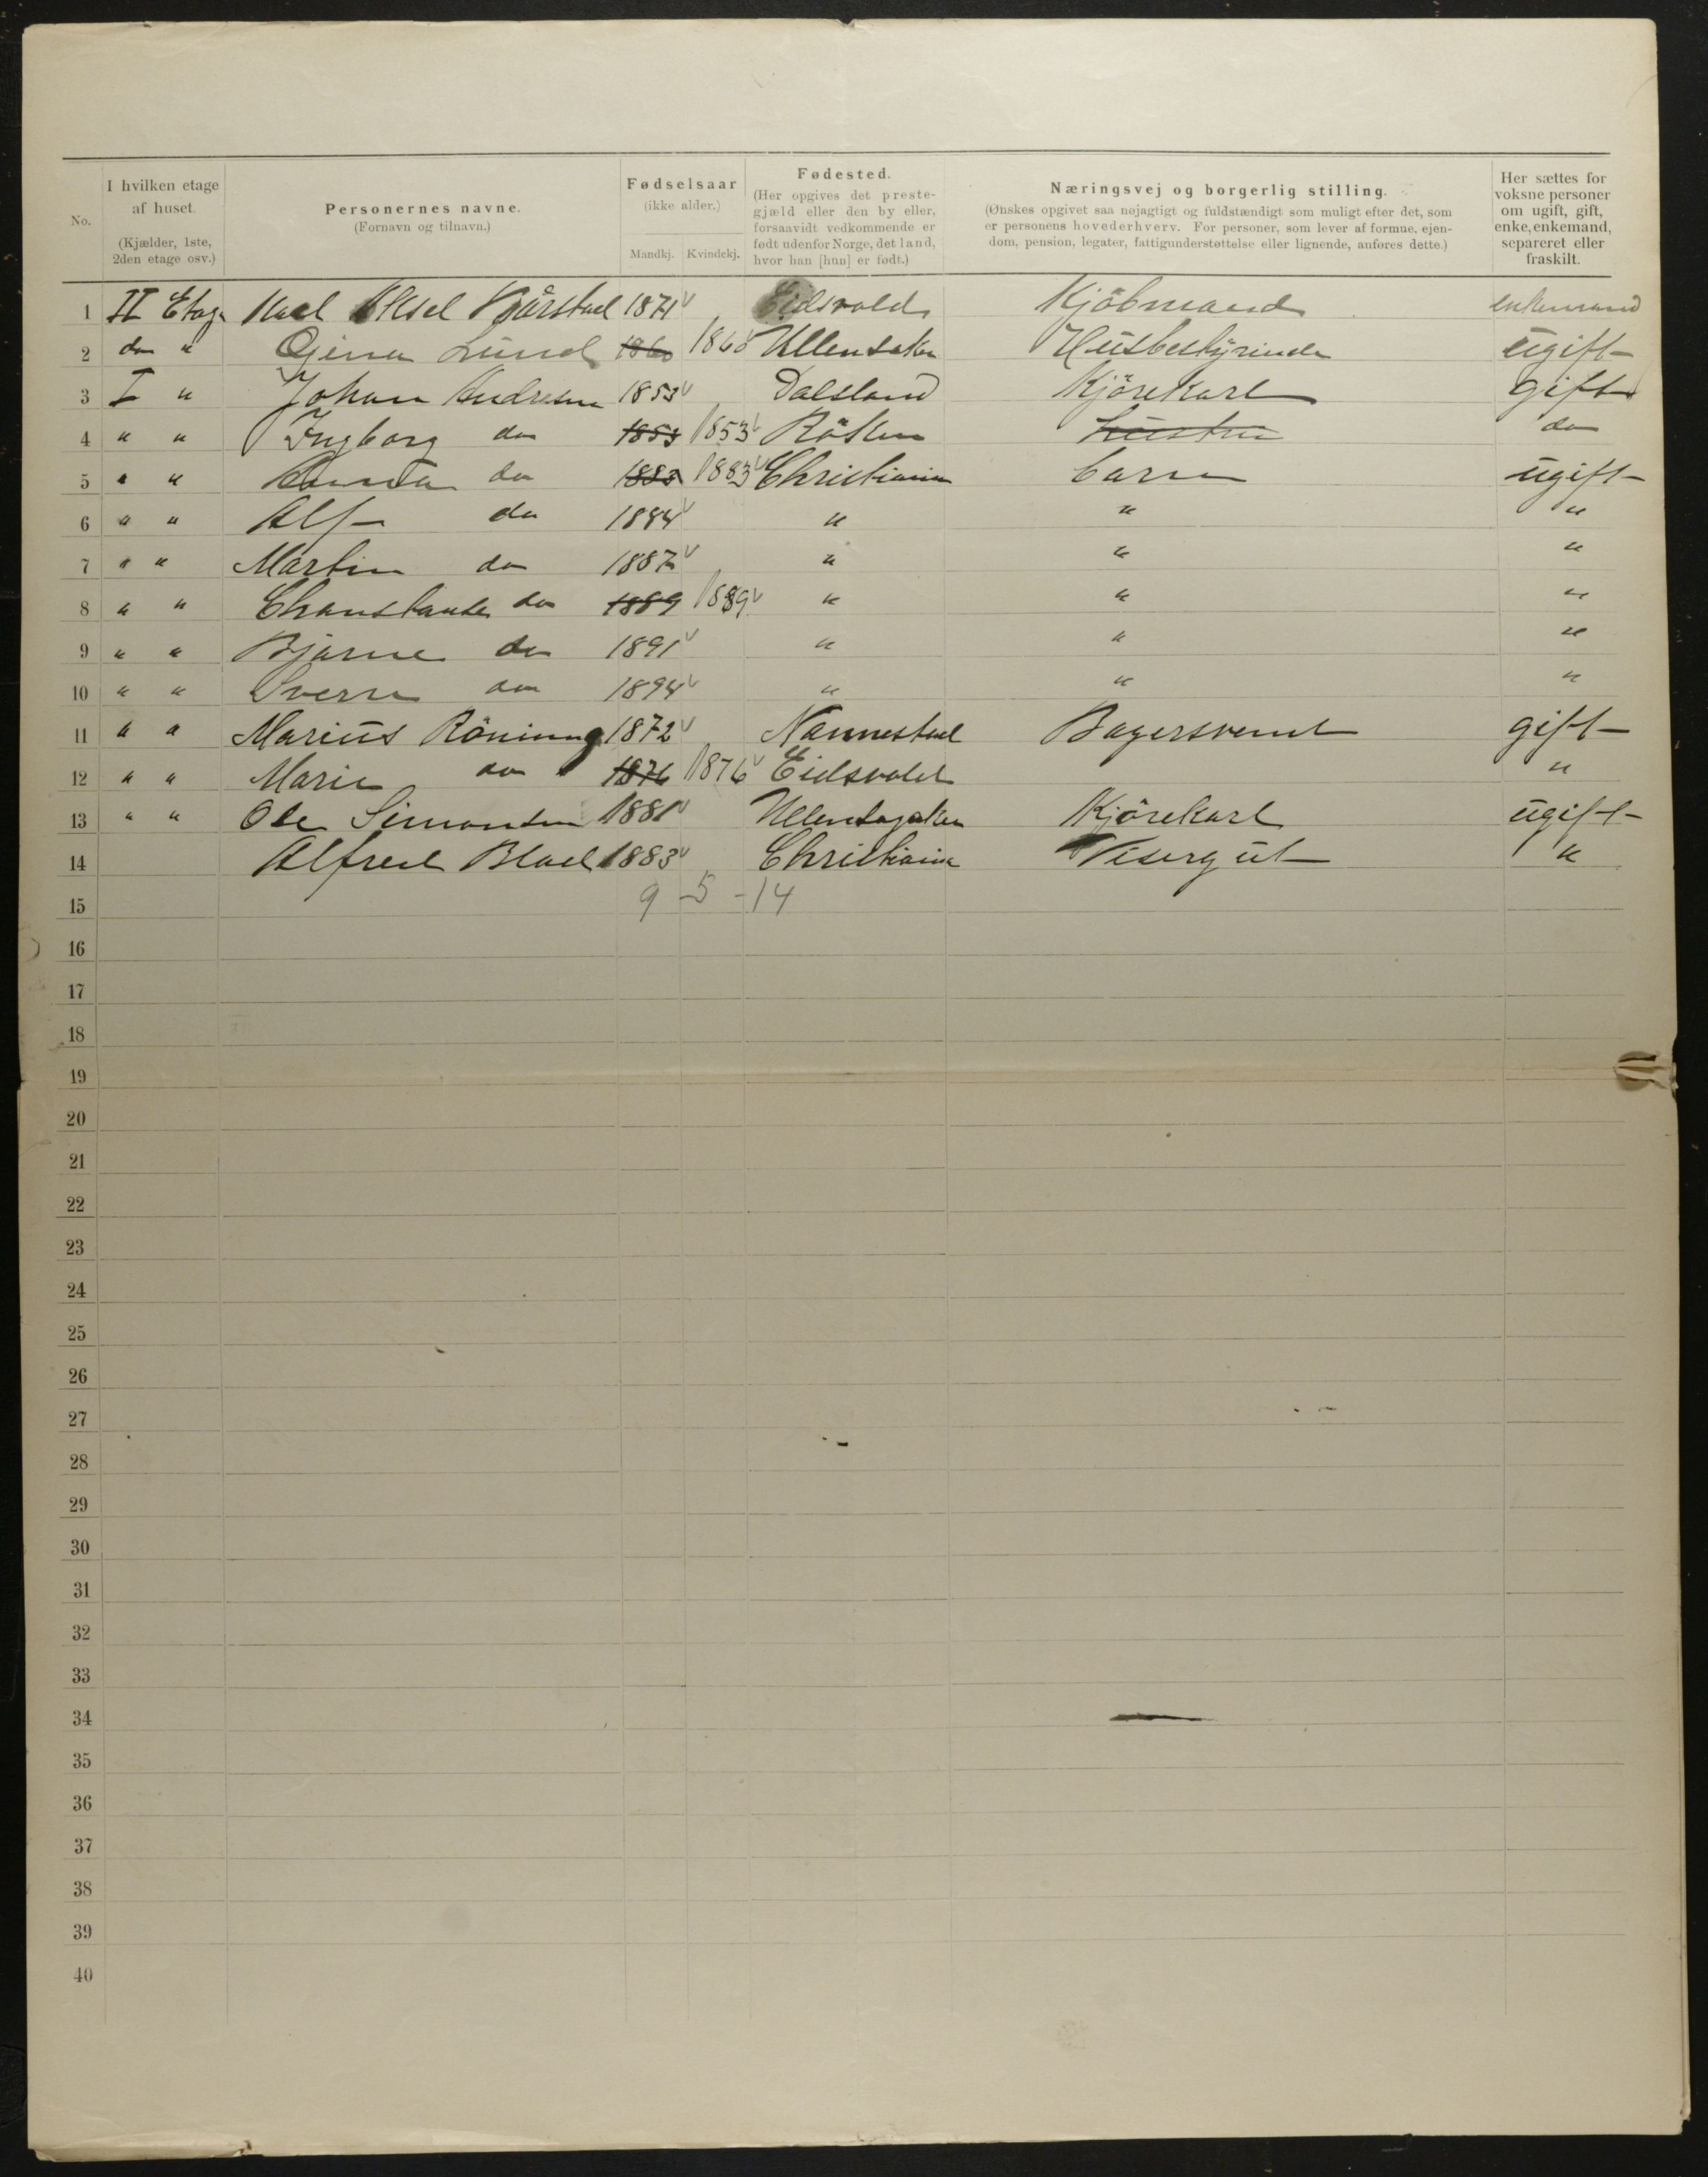 No.
I hvilken etage
af huset.
(Kjælder, 1ste,
2den etage osv.)
Personernes navne.
(Fornavn og tilnavn.)
Fødselsaar
(ikke alder.)
Mandkj. Kvindekj.
Fødested.
(Her opgives det preste-
gjæld eller den by eller,
forsaavidt vedkommende er
født udenfor Norge, det land,
hvor han [hun] er født.)
Næringsvej og borgerlig stilling.
(Ønskes opgivet saa nøjagtigt og fuldstændigt som muligt efter det, som
er personens hovederhverv. For personer, som lever af formue, ejen-
dom, pension, legater, fattigunderstøttelse eller lignende, anføres dette.)
Her sættes for
voksne personer
om ugift, gift,
enke, enkemand,
separeret eller
fraskilt.
1 II Etage Aksel 1871 Eidsvold Kjöbmand enkemand
2 do " Gjina Lund 1860 1860 Ullensaker Husbestyrinde ugift
3 I " Johan Andresen 1853 Dalsland Kjörekarl gift
4 " " Ingborg do 1853 1853 Röken Hustru do
5 " " do 1883 1883 Christiania barn ugift
6 " " Alf do 1884 " " "
7 " " Martin do 1887 " " "
8 " " do 1889 1889 " " "
9 " " Bjarne do 1891 " " "
10 " " Sverre do 1894 " " "
11 " " Marius Röning 1872 Nannestad Bagersvend gift
12 " " Marie do 1876 1876 Eidsvold "
13 " " Ole Simonsen 1881 Kjörekarl ugift
14 Alfred 1883 Christiania Visergut "
15 9 - 5 - 14
16
17
18
19
20
21
22
23
24
25
26
27
28
29
30
31
32
33
34
35
36
37
38
39
40